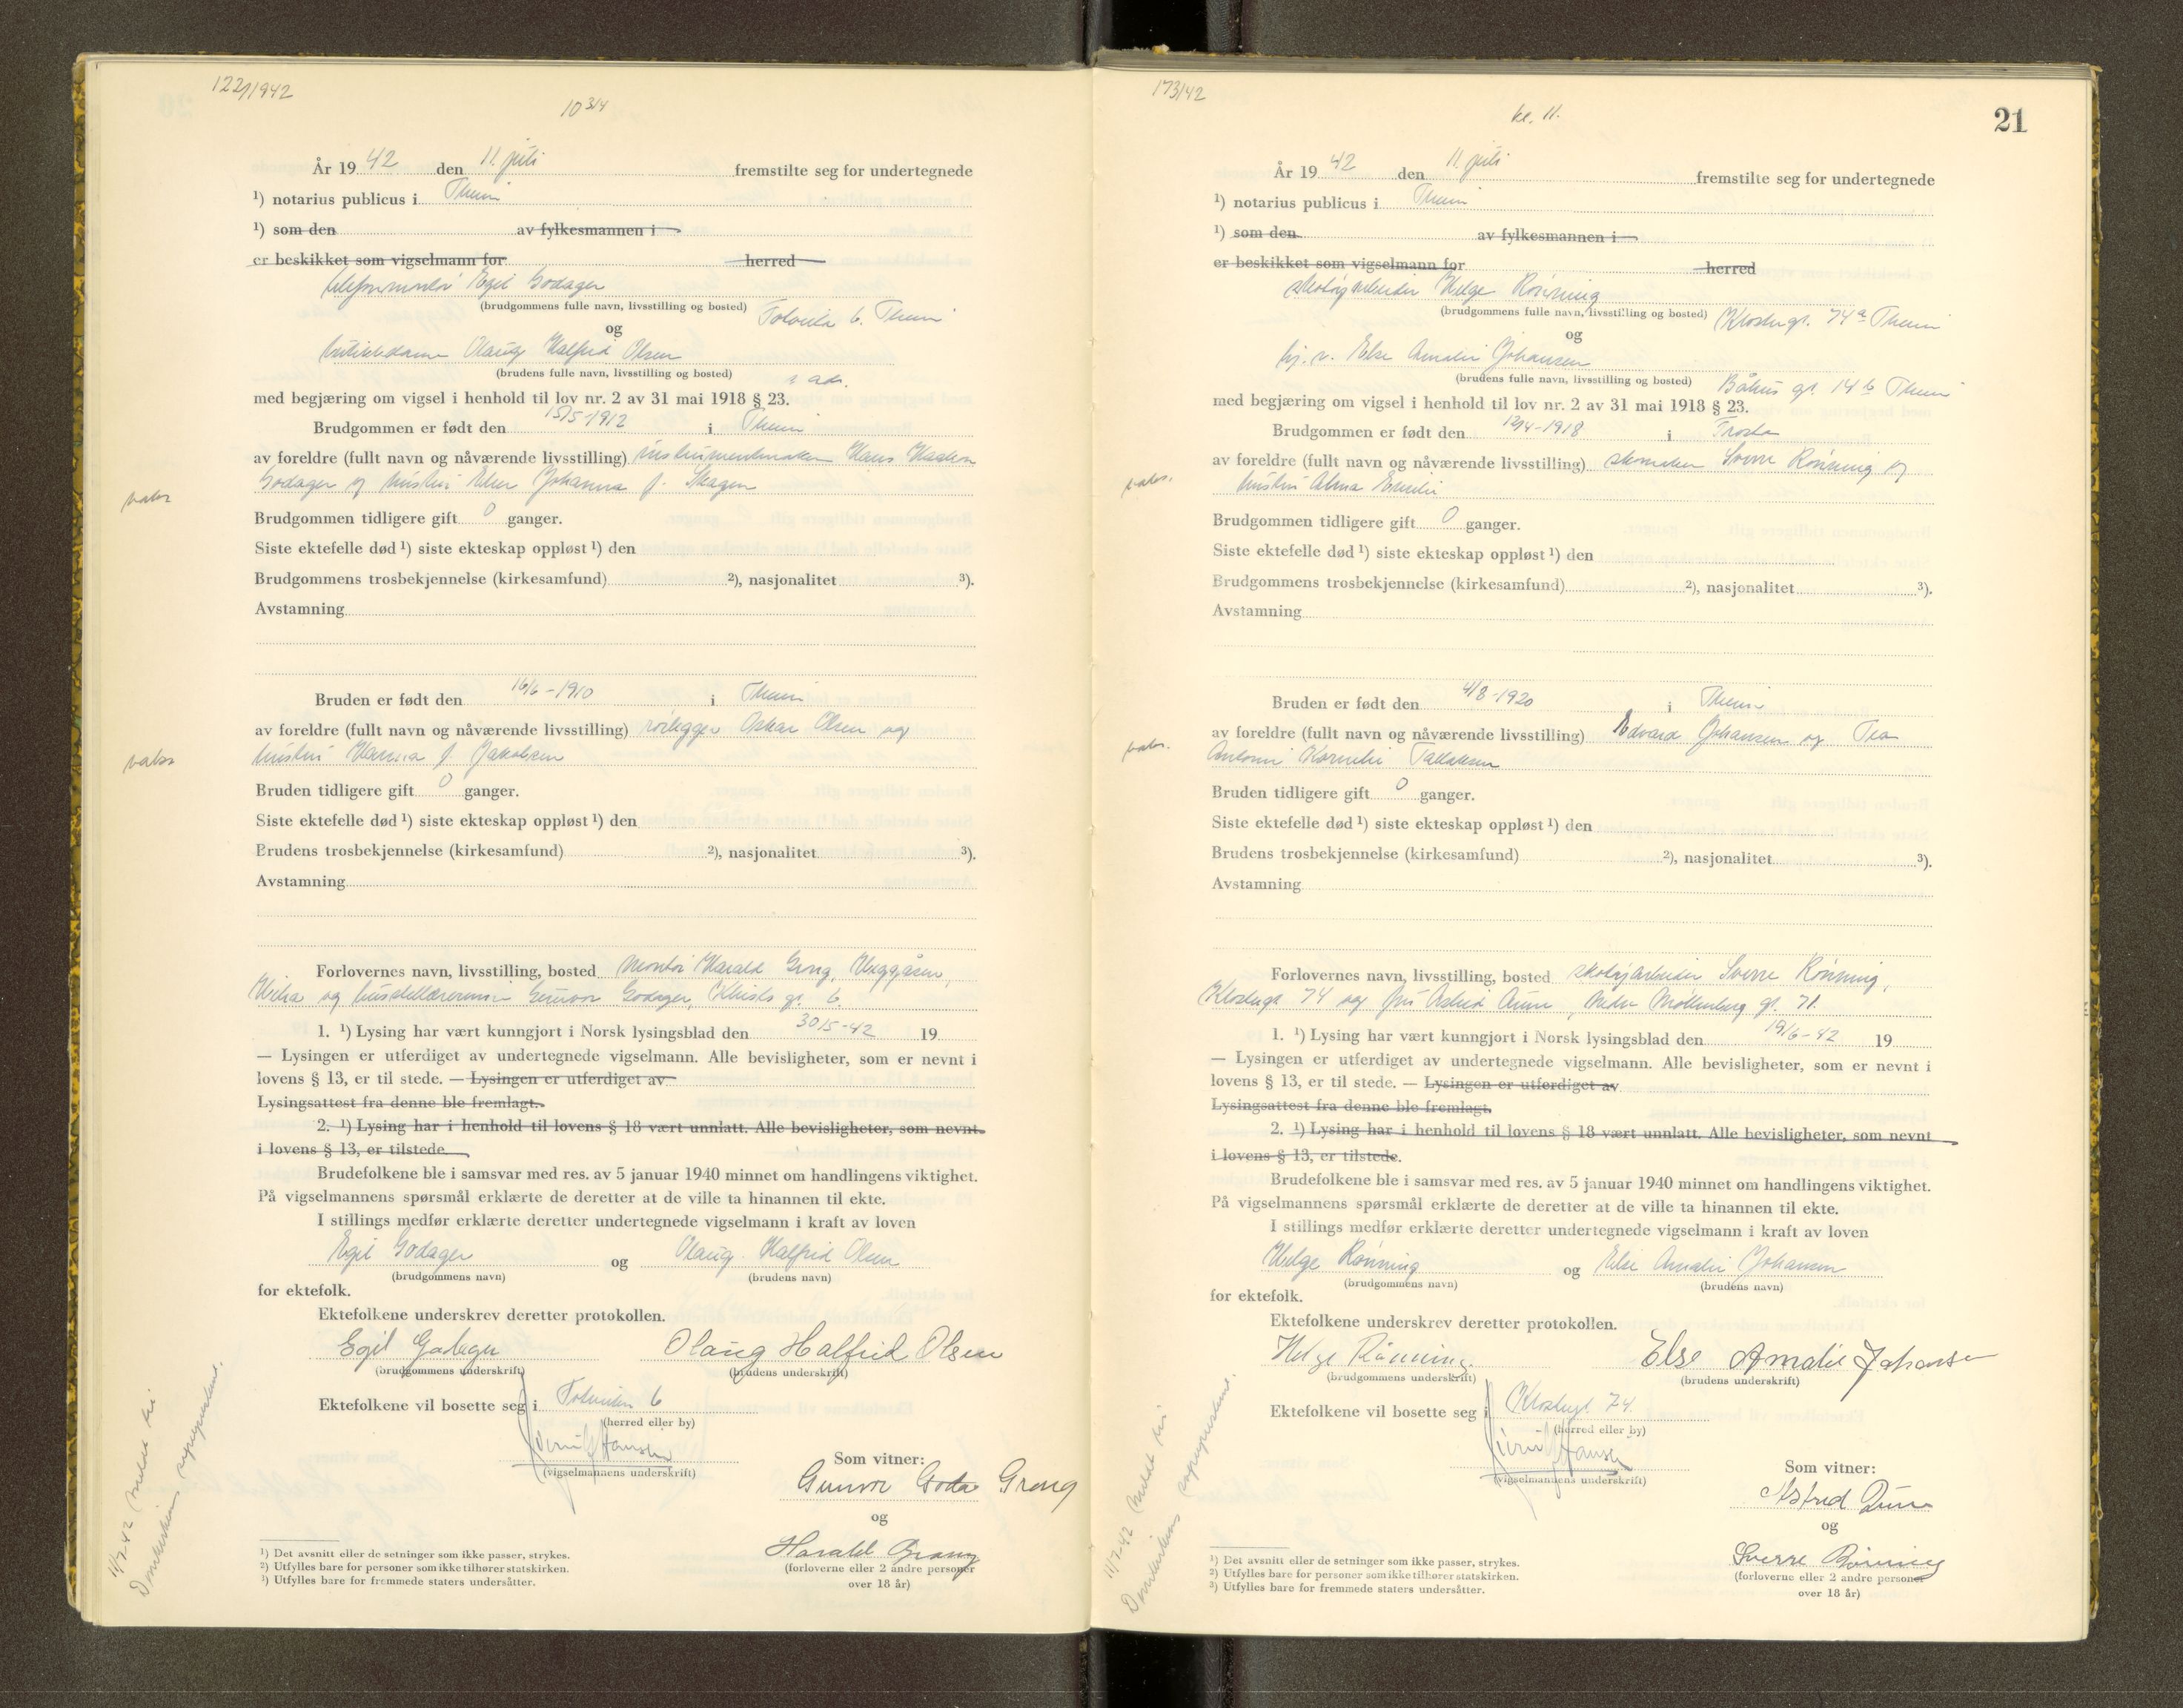 122/1942
10 3/4
År 19 42 den 11. juli fremstilte seg for undertegnede
¹) notarius publicus i Theim
¹) som den av fylkesmannen i
er beskikket som vigselmann for herred
Egil Godager
(brudgommens fulle navn, livsstilling og bosted)
6. Theim
og
Olaug Halfrid Olsen
(brudens fulle navn, livsstilling og bosted)
s. adr.
med begjæring om vigsel i henhold til lov nr. 2 av 31 mai 1918 § 23.
Brudgommen er født den 15/5-1912 i Theim
av foreldre (fullt navn og nåværende livsstilling) instrumentmaker Hans Haakon
Godager og hustru Johanna f. Skagen
Brudgommen tidligere gift 0 ganger.
Siste ektefelle død ¹) siste ekteskap oppløst ¹) den
Brudgommens trosbekjennelse (kirkesamfund) ²), nasjonalitet ³).
Avstamning
Bruden er født den 16/6-1910 i Theim
av foreldre (fullt navn og nåværende livsstilling) rørlegger Oskar Olsen og
hustru Hanna f. Jakobsen
Bruden tidligere gift 0 ganger.
Siste ektefelle død ¹) siste ekteskap oppløst ¹) den
Brudens trosbekjennelse (kirkesamfund) ²), nasjonalitet ³).
Avstamning
Forlovernes navn, livsstilling, bosted Montør Harald Grong,
og Gunvor Godager, gt. 6.
1. ¹) Lysing har vært kunngjort i Norsk lysingsblad den 30/5-42 19
— Lysingen er utferdiget av undertegnede vigselmann. Alle bevisligheter, som er nevnt i
lovens § 13, er til stede. — Lysingen er utferdiget av
Lysingsattest fra denne ble fremlagt.
2. ¹) Lysing har i henhold til lovens § 18 vært unnlatt. Alle bevisligheter, som nevnt
i lovens § 13, er tilstede.
Brudefolkene ble i samsvar med res. av 5 januar 1940 minnet om handlingens viktighet.
På vigselmannens spørsmål erklærte de deretter at de ville ta hinannen til ekte.
I stillings medfør erklærte deretter undertegnede vigselmann i kraft av loven
Egil Godager og Olaug Halfrid Olsen
(brudgommens navn) (brudens navn)
for ektefolk.
Ektefolkene underskrev deretter protokollen.
Egil Godager Olaug Halfrid Olsen
(brudgommens underskrift) (brudens underskrift)
Ektefolkene vil bosette seg i 6
(herred eller by)
Hansen
(vigselmannens underskrift)
Som vitner:
Gunvor Goda Grong
og
Harald Grong
(forloverne eller 2 andre personer
over 18 år)
¹) Det avsnitt eller de setninger som ikke passer, strykes.
²) Utfylles bare for personer som ikke tilhører statskirken.
³) Utfylles bare for fremmede staters undersåtter.
11/7-42 meldt til
Domkirkens sogneprestemb.
173/42
kl. 11.
21
År 19 42 den 11. juli fremstilte seg for undertegnede
¹) notarius publicus i Theim
¹) som den av fylkesmannen i
er beskikket som vigselmann for herred
skotøyarbeider Helge Rønning
(brudgommens fulle navn, livsstilling og bosted) Klostergt. 74a Theim
og
hj. v. Else Amalie Johansen
(brudens fulle navn, livsstilling og bosted) Båhus gt. 14 b Theim
med begjæring om vigsel i henhold til lov nr. 2 av 31 mai 1918 § 23.
Brudgommen er født den 12/4-1918 i
av foreldre (fullt navn og nåværende livsstilling) skomaker Sverre Rønning og
hustru Alma Emelie
Brudgommen tidligere gift 0 ganger.
Siste ektefelle død ¹) siste ekteskap oppløst ¹) den
Brudgommens trosbekjennelse (kirkesamfund) ²), nasjonalitet ³).
Avstamning
Bruden er født den 4/8-1920 i Theim
av foreldre (fullt navn og nåværende livsstilling) Edvard Johansen og Tea
Antonie Kornelie
Bruden tidligere gift 0 ganger.
Siste ektefelle død ¹) siste ekteskap oppløst ¹) den
Brudens trosbekjennelse (kirkesamfund) ²), nasjonalitet ³).
Avstamning
Forlovernes navn, livsstilling, bosted skotøyarbeider Sverre Rønning,
Klostergt 74 og fru Astrid Aune, Nedre Møllenberg gt. 71.
1. ¹) Lysing har vært kunngjort i Norsk lysingsblad den 19/6-42 19
— Lysingen er utferdiget av undertegnede vigselmann. Alle bevisligheter, som er nevnt i
lovens § 13, er til stede. — Lysingen er utferdiget av
Lysingsattest fra denne ble fremlagt.
2. ¹) Lysing har i henhold til lovens § 18 vært unnlatt. Alle bevisligheter, som nevnt
i lovens § 13, er tilstede.
Brudefolkene ble i samsvar med res. av 5 januar 1940 minnet om handlingens viktighet.
På vigselmannens spørsmål erklærte de deretter at de ville ta hinannen til ekte.
I stillings medfør erklærte deretter undertegnede vigselmann i kraft av loven
Helge Rønning og Else Amalie Johansen
(brudgommens navn) (brudens navn)
for ektefolk.
Ektefolkene underskrev deretter protokollen.
Helge Rønning. Else Amalie Johansen
(brudgommens underskrift) (brudens underskrift)
Ektefolkene vil bosette seg i Klostergt 74.
(herred eller by)
Hansen
(vigselmannens underskrift)
Som vitner:
Astrid Aune
og
Sverre Rønning
(forloverne eller 2 andre personer
over 18 år)
¹) Det avsnitt eller de setninger som ikke passer, strykes.
²) Utfylles bare for personer som ikke tilhører statskirken.
³) Utfylles bare for fremmede staters undersåtter.
11/7-42 meldt til
Domkirkens sogneprestemb.